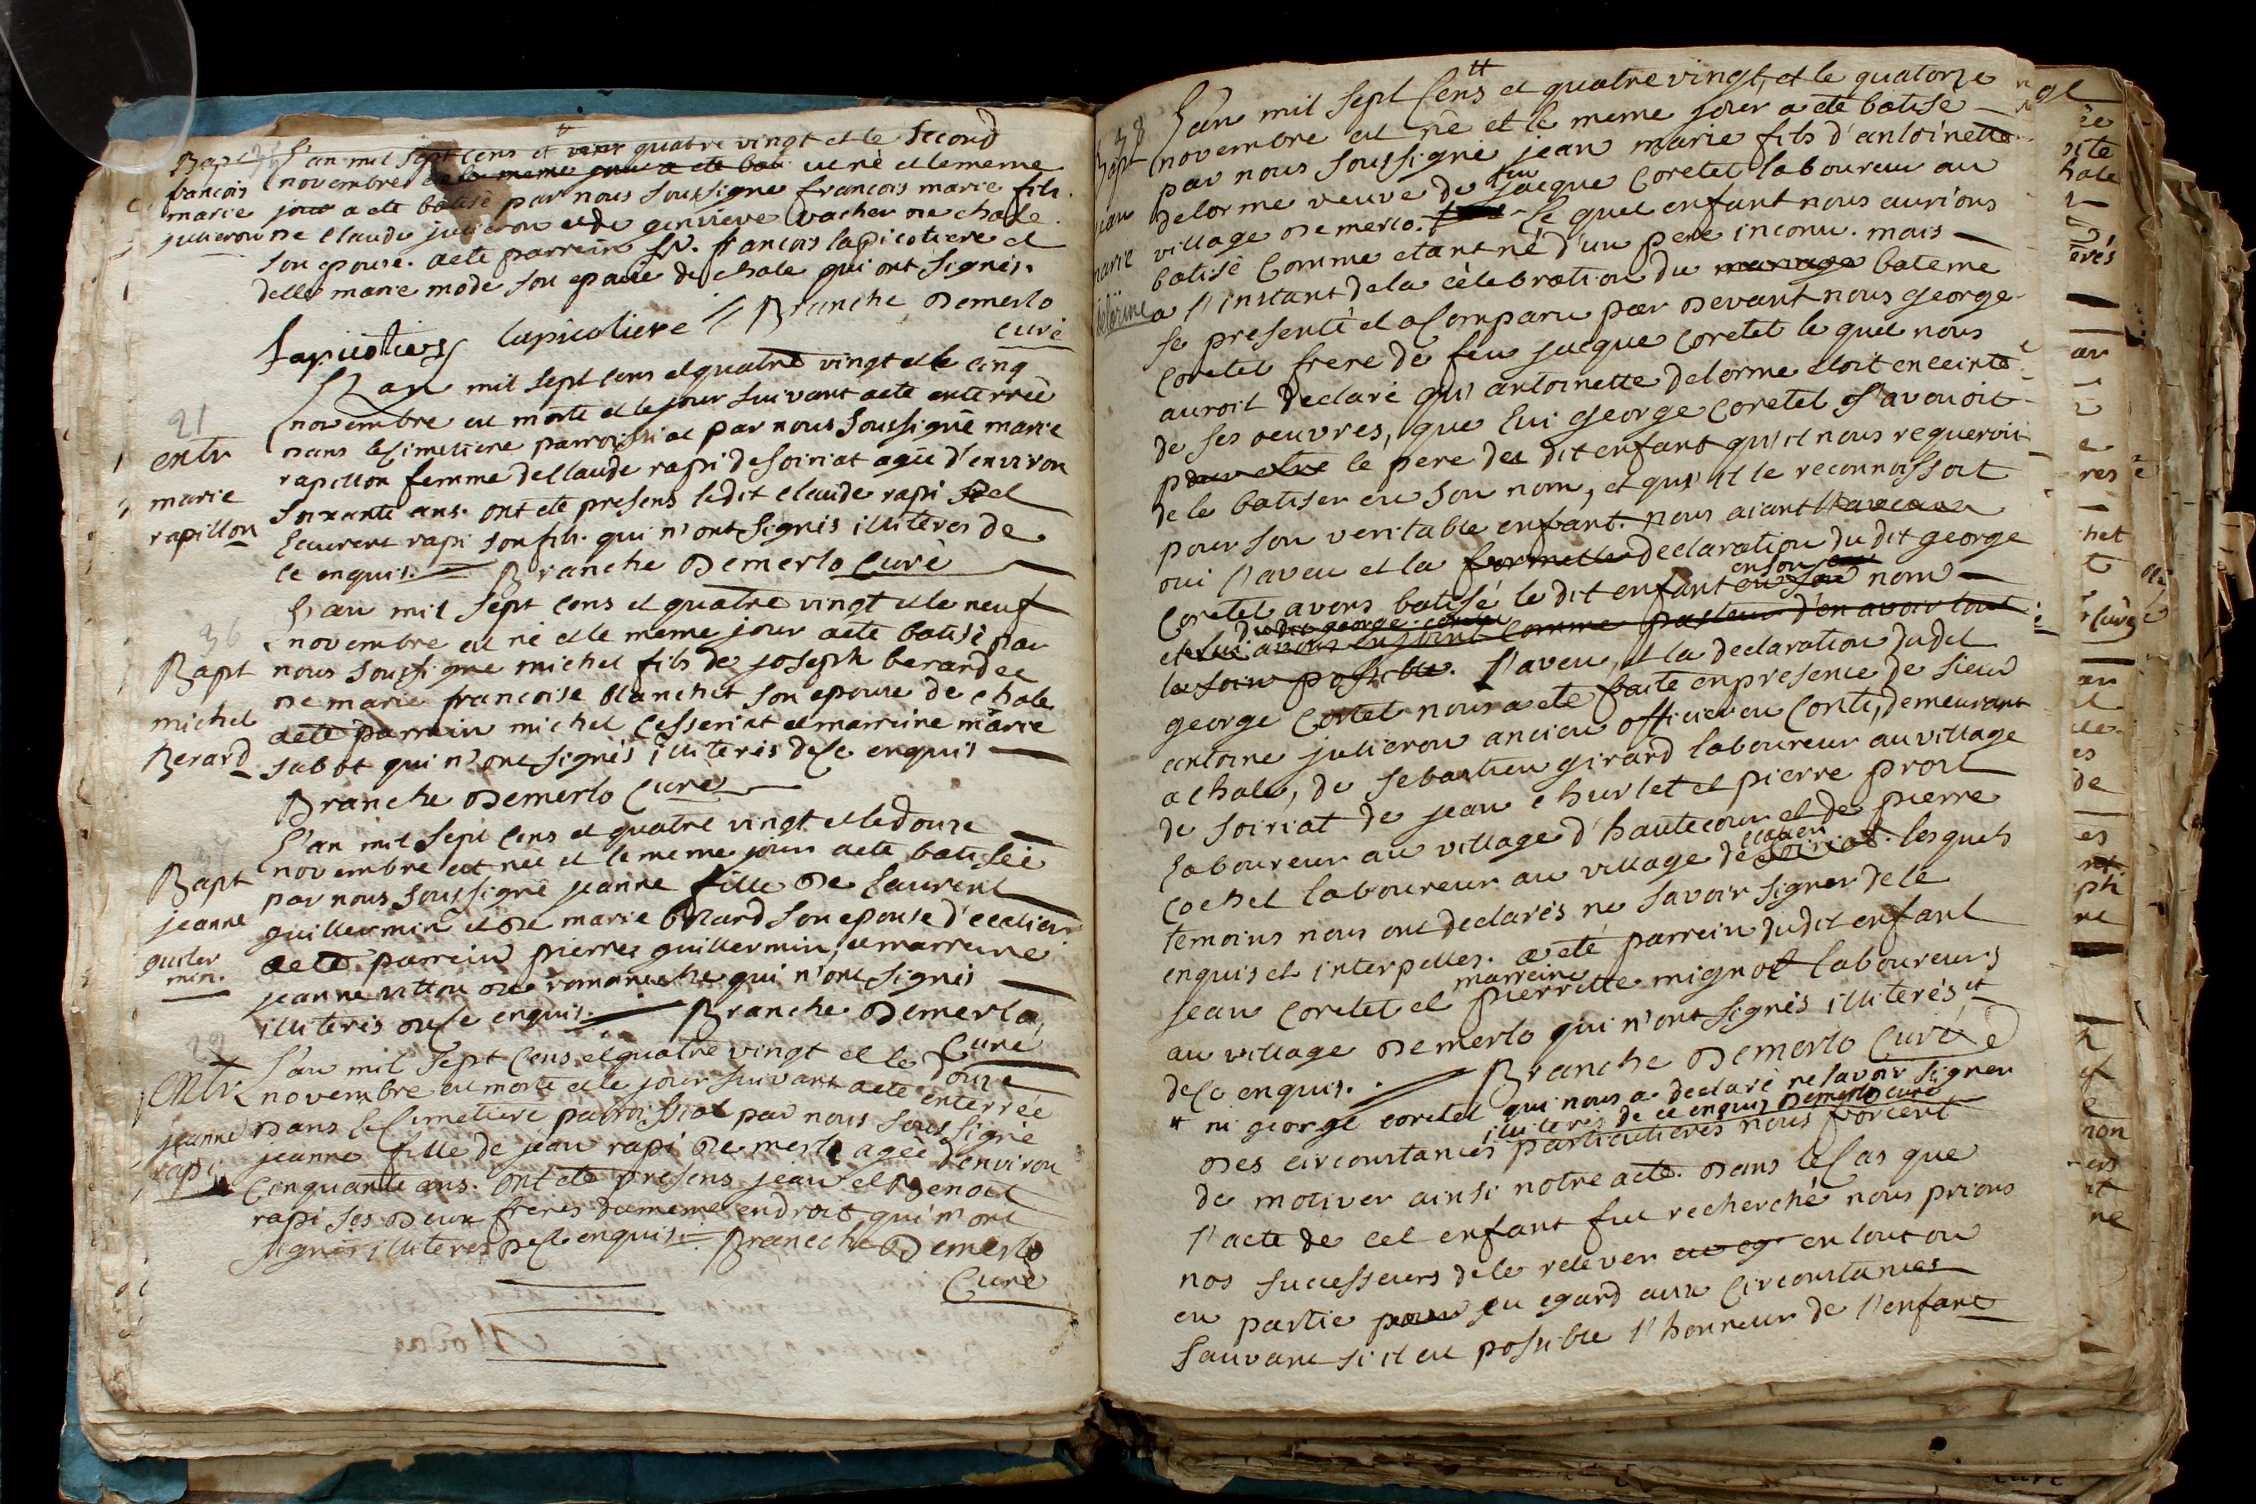 L'an mil sept cens et quatre vingt et le second
Bapt novembre est né et le meme
francois jour a eté batisé par nous soussigné francois marie fils
marie de Claude julieron et de genvieve vacher de chale
julieron son epouse. a eté parrein Sr. francois lapicotiere et
delle marie mode son epouse de chale qui ont signés.
lapicotiere Branche Demerlo
curé
L'an mil sept cens et quatre vingt et le cinq
21 novembre est morte et le jour suivant a eté enterrée
entr dans le Cimetiere parroissial par nous soussigné marie
marie rapillon femme de Claude rapi de soiriat agée d'environ
rapillon soixante ans. ont eté presens ledit Claude rapi et
Laurent rapi son fils. qui n'ont signés illiterés de
ce enquis. Branche Demerlo Curé
L'an mil sept cens et quatre vingt et le neuf
36 novembre est né et le meme jour a eté batisé par
Bapt nous soussigné michel fils de joseph berard et
de marie francoise blanchet son epouse de chale
michel a eté parrein michel Cesseriat et marreine marie
Berard sabot qui n'ont signés illiterés de Ce enquis
Branche Demerlo Curé
L'an mil sept cens et quatre vingt et le douze
novembre est née et le meme jour a eté batisée
Bapt par nous soussigné jeanne fille de Laurent
jeanne guillermin et de marie berard son epouse
guiller
min. a eté parrein pierre guillermin, et marreine
jeanne vittou de romaneche qui n'ont signés
illiterés de Ce enquis. Branche Demerlo,
Curé
L'an mil sept cens et quatre vingt et le douze
Entr novembre est morte et le jour suivant a eté enterrée
dans le Cimetiere paroissial par nous sous signé
jeanne jeanne fille de jean rapi de merlo agée d'environ
rapi Cinquante ans. ont eté presens jean et Benoit
rapi ses deux freres du meme endroit qui n'ont
signés illiterés de Ce enquis. Branche Demerlo
Curé
38 L'an mil sept Cens et quatre vingt, et le quatorze
Bapt novembre est né et le meme jour a eté batisé
par nous soussigné jean marie fils d'antoinette
jean delorme veuve de feu jacque Coretet laboureur au
village de merlo. le quel enfant nous aurions
marie batisé Comme etant né d'un pere inconu. mais
delorme a l'instant de la célebration du mariage bateme
se presenté et a Comparu par devant nous george
Coretet frere de feu jacque Coretet le quel nous
auroit declaré qu'antoinette delorme etoit enceinte
de ses oeuvres, que lui george Coretet s'avouoit
pour etre le pere du dit enfant qu'il nous requeroit
de le batiser en son nom, et qu'il le reconnoissoit
pour son veritable enfant. nous aiant
oui l'aveu et la formelle declaration du dit george
Coretet avons batisé le dit enfant en son nom
du dit george
et lui avons enjoint comme pasteur d'en avoir tout
le soin possible. l'aveu, et la declaration dudit
george Cortet nous a eté faite en presence de sieur
antoine julieron ancien officier en Conte, demeurant
a chale, de sebastien girard laboureur au village
de soiriat de jean churlet et pierre proit
laboureur au village d'hautecour et de pierre
Cochet laboureur au village de soiriat. lesquels
temoins nous ont declarés ne savoir signer de le
enquis et interpellés. a eté parrein du dit enfant
jean Coretet et marreine pierrette mignot laboureurs
au village de merlo qui n'ont signés illiterés
de Ce enquis. Branche Demerlo Curé
ni george coretet qui nous a declaré ne savoir signer
illiterés de ce enquis Demerlo curé
des circonstances particulieres nous forcent
de motiver ainsi notre acte. dans le Cas que
l'acte de cet enfant fut recherché nous prions
nos successeurs de le relever en tout ou
en partie eu egard aux circonstances
sauvant si il est possible l'honneur de l'enfant